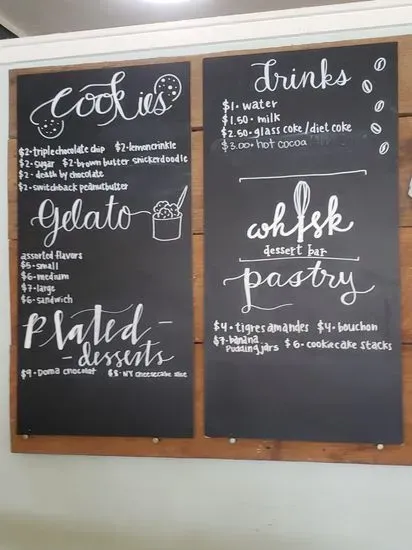 Cookies
$2•triple chocolate chip $2•lemon crinkle
$2•sugar $2•brown butter snickerdoodle
$2•death by chocolate
$2•switchback peanutbutter
Gelato
assorted flavors
$5•small
$6•medium
$7•large
$6•sandwich
Plated-
-desserts
$9•Doma chocolat $8•NY cheesecake slice
drinks
$1•water
1.50•milk
$2.50•glass coke/diet coke
$3.00•hot cocoa
whisk
dessert bar
pastry
$4•tigres amandes $4•bouchon
$7•banana
pudding jars $6•cookie cake stacks